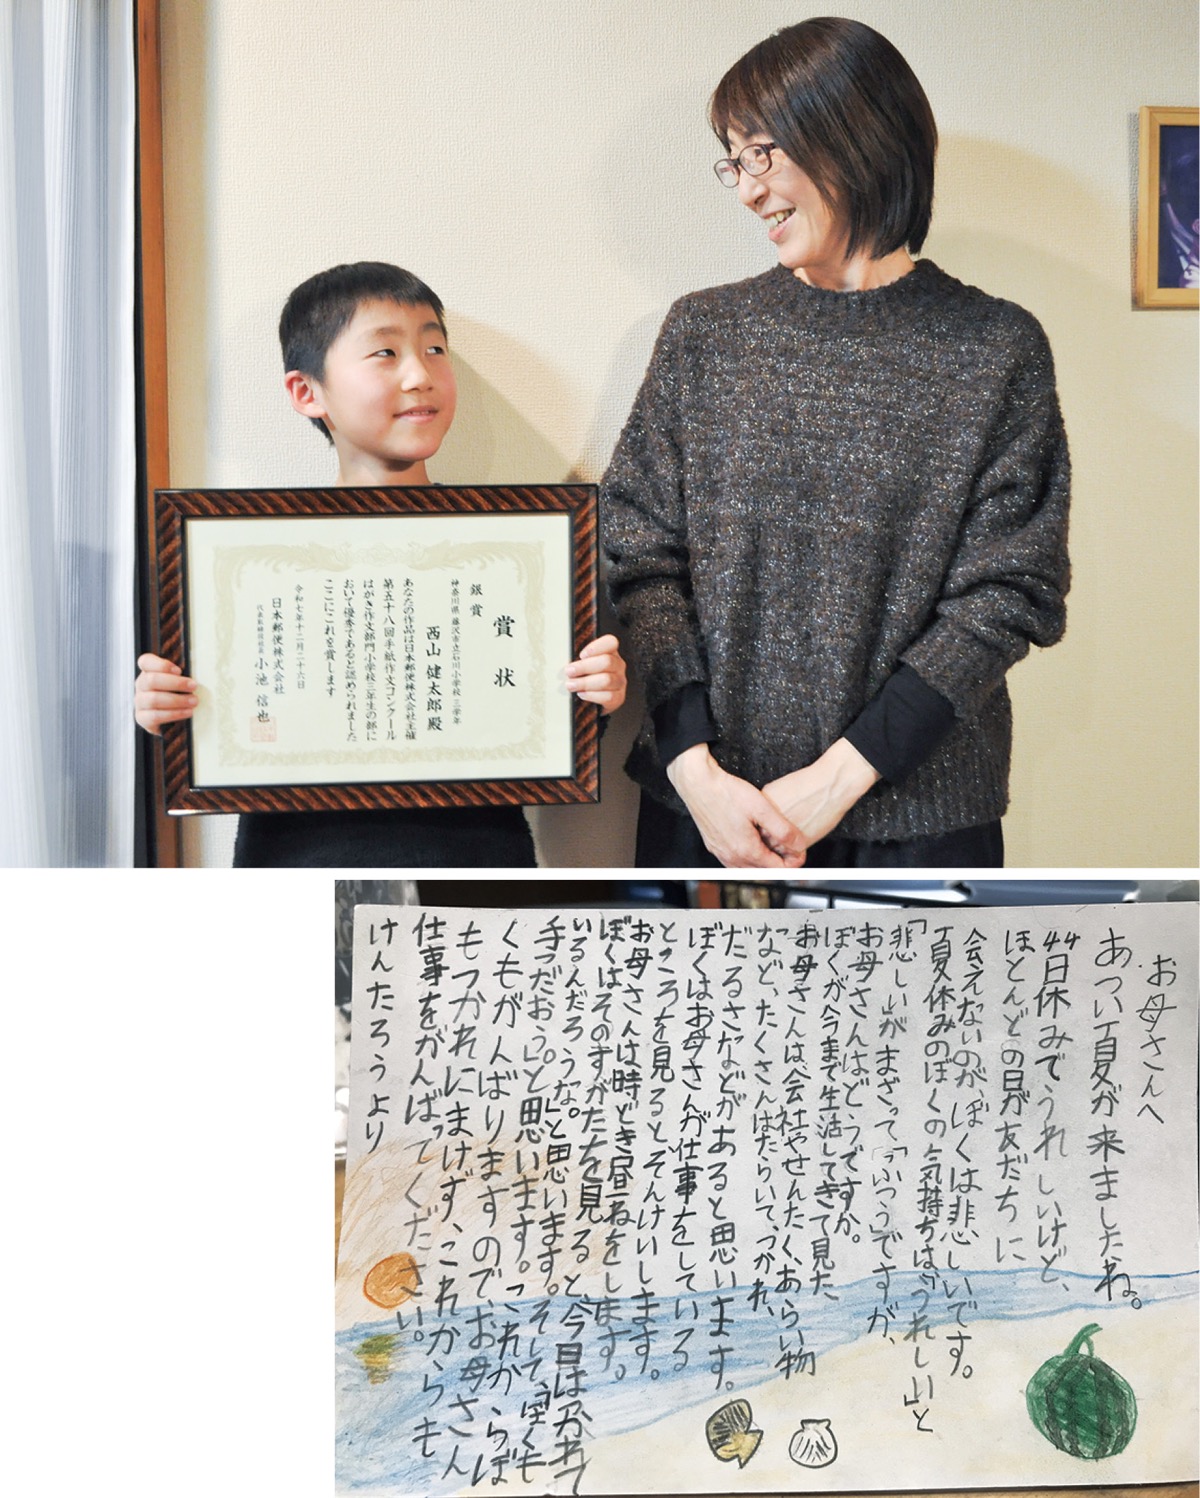 賞状
銀賞
神奈川県 藤沢市立石川小学校 三学年
西山 健太郎 殿
あなたの作品は日本郵便株式会社主催
第五十八回手紙作文コンクール
はがき作文部門小学校三年生の部に
おいて優秀であると認められました
ここにこれを賞します
令和七年十二月二十六日
日本郵便株式会社
代表取締役社長 小池 信也
お母さんへ
あつい夏が来ましたね。
44日休みでうれしいけど、
ほとんどの日が友だちに
会えないのが、ぼくは悲しいです。
夏休みのぼくの気持ちは、「うれしい」と
「悲しい」がまざって「ふつう」ですが、
お母さんはどうですか。
ぼくが今まで生活してきて見た、
お母さんは、会社やせんたく、あらい物
など、たくさんはたらいて、つかれ、
だるさなどがあると思います。
ぼくはお母さんが仕事をしている
ところを見ると、そんけいします。
お母さんは時どき昼ねをします。
ぼくはそのすがたを見ると、「今日はつかれて
いるんだろうな。」と思います。そして、「ぼくも
手つだおう。」と思います。これからぼ
くもがんばりますので、お母さん
もつかれにまけず、これからも
仕事をがんばってください。
けんたろうより